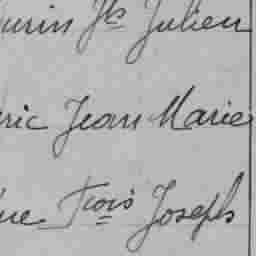 urin Jh Julien
ric Jean Marie
ue Frois Joseph